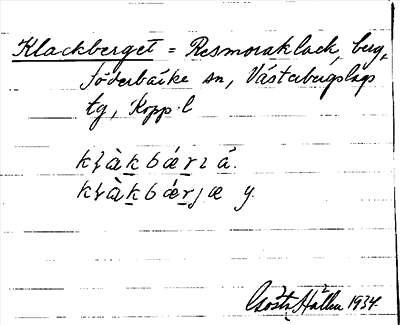 Klackberget = Resmoraklack, berg,
Söderbärke sn, Västerbergslags
tg, Kopp. l
kɬàkbárɩ á.
kɬàkbárjæ y.
Gösta Hallén 1934